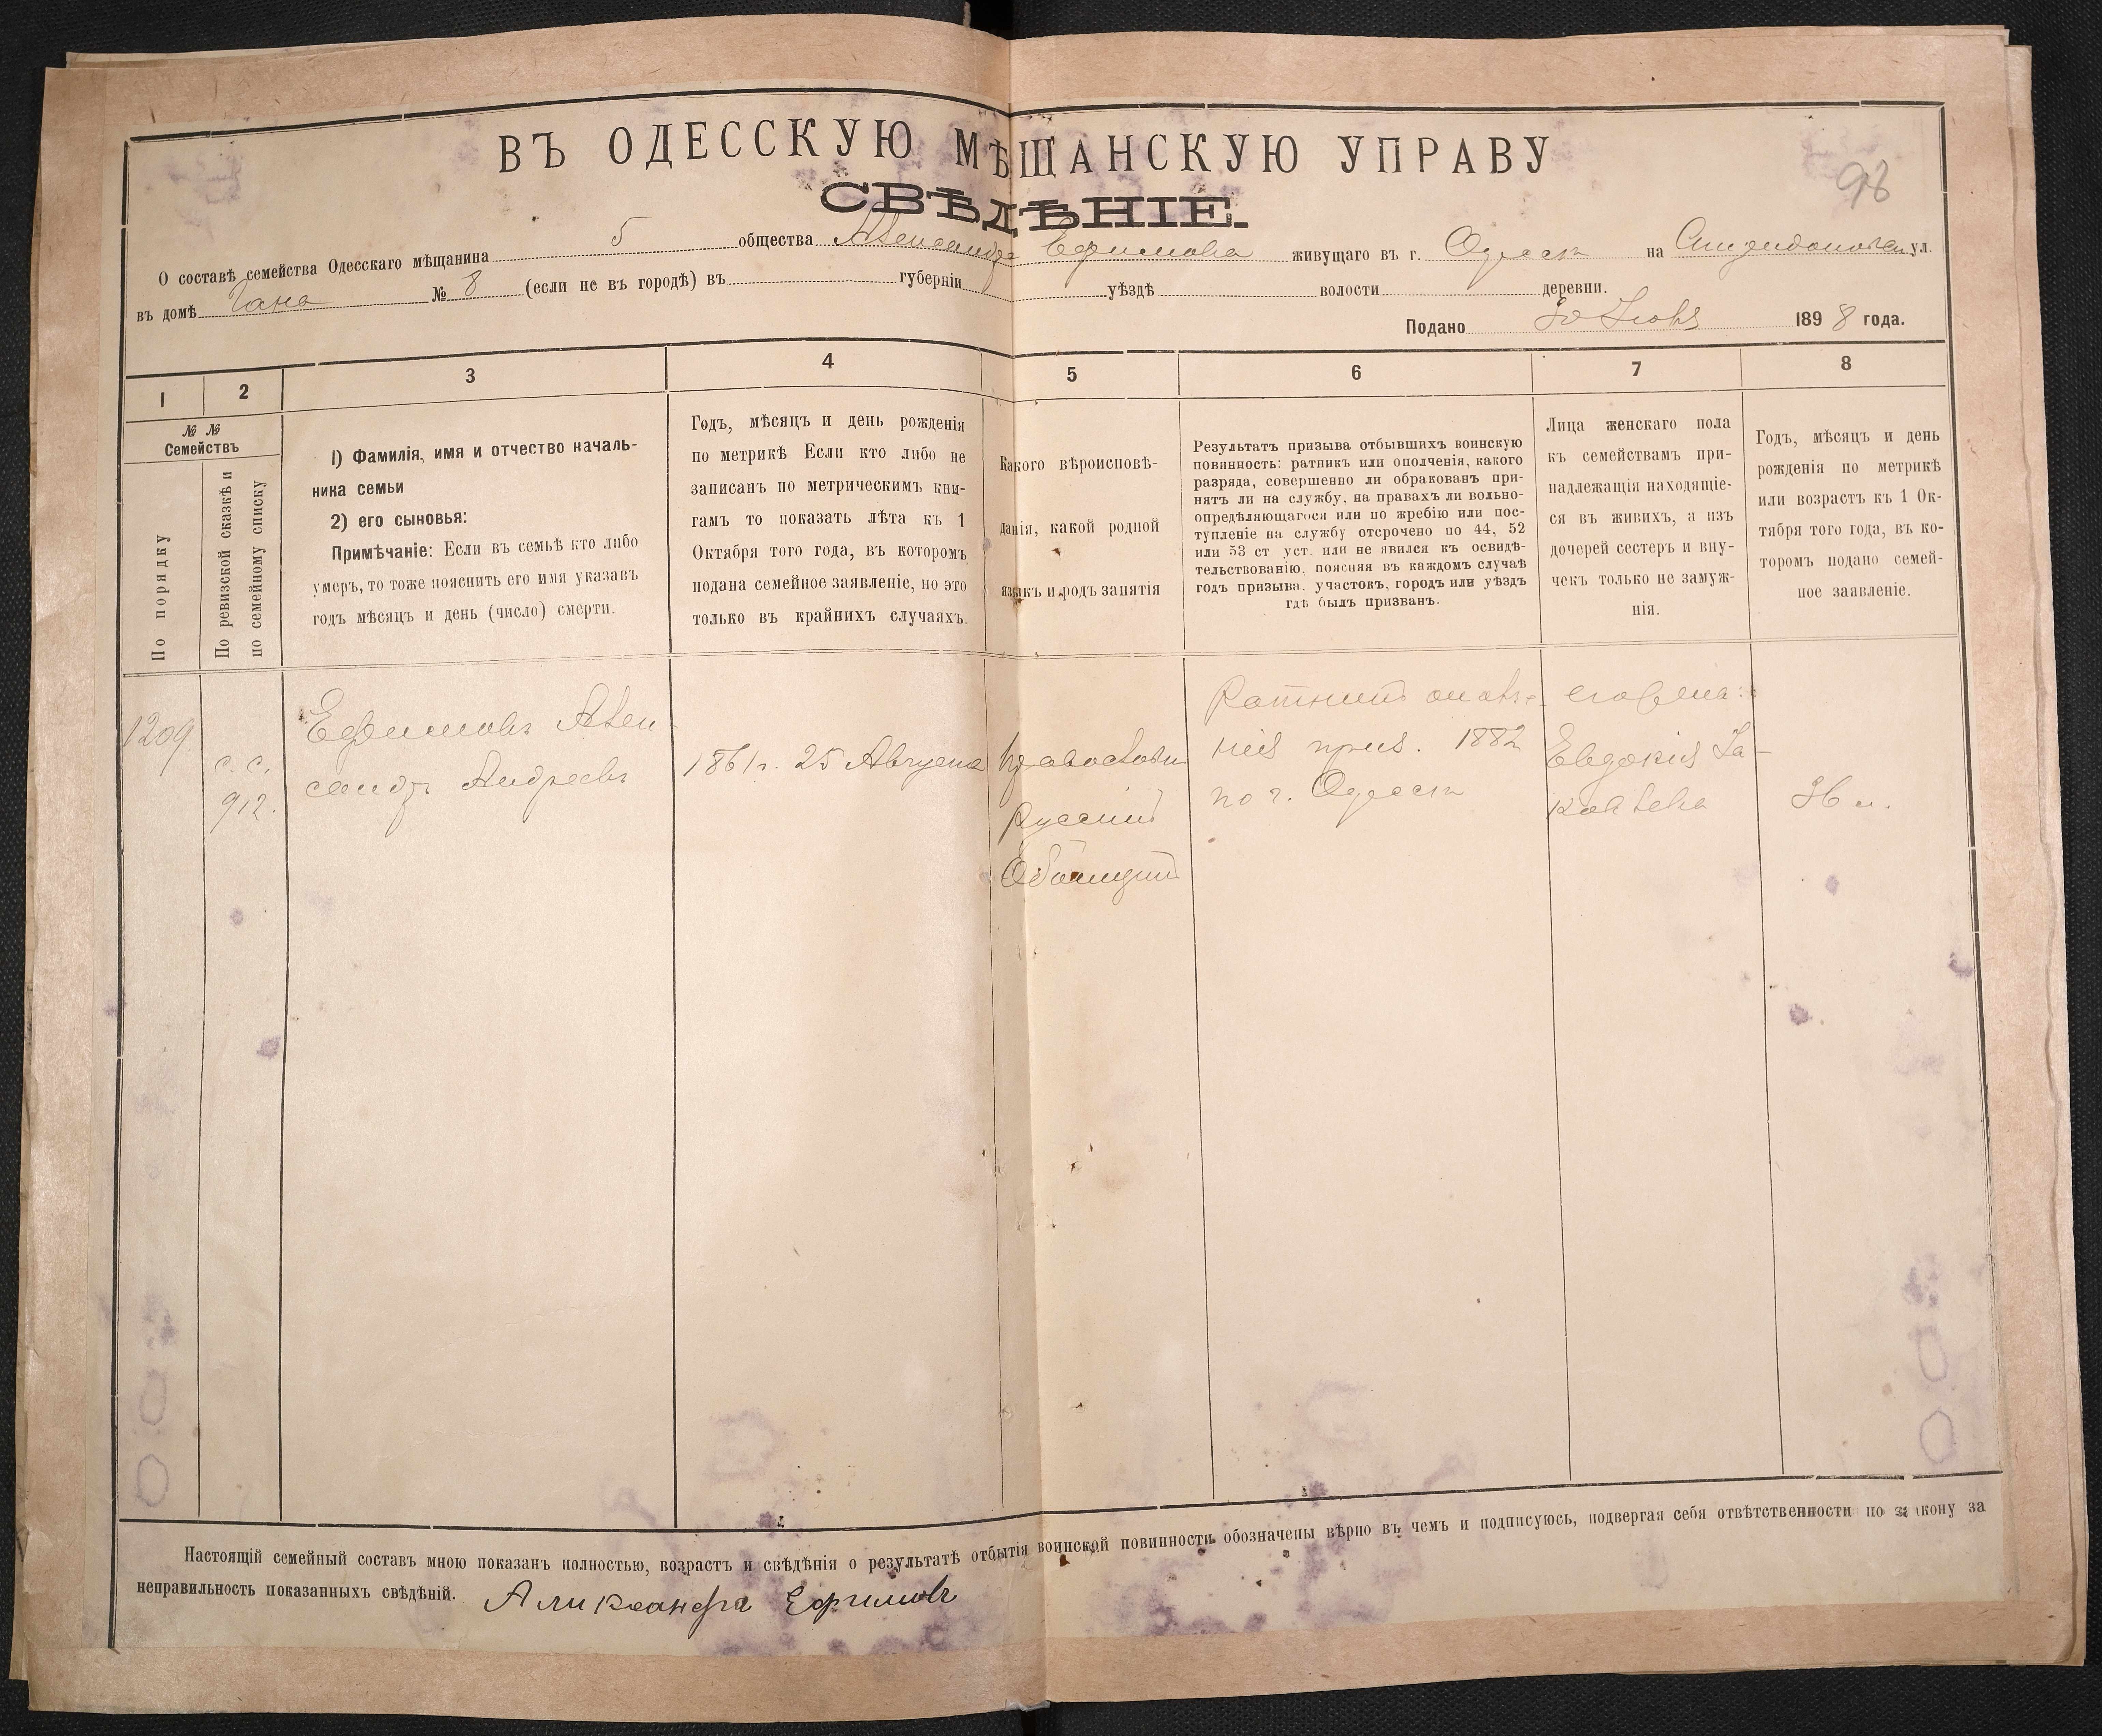 ВЪ ОДЕССКУЮ МѢЩАНСКУЮ УПРАВУ
98
СВѢДѢНІЕ.
О составѣ семейства Одесскаго мѣщанина 5 общества Александра Ефимова живущаго въ г. Одессѣ на ул.
въ домѣ Гана № 8 (если не въ городѣ) въ губерніи уѣздѣ волости деревни.
Подано 30 Іюня 1898 года.
1 2 3 4 5 6 7 8
№ №
Семействъ
По порядку
По ревизской сказкѣ и
по семейному списку
1) Фамилія, имя и отчество началь-
ника семьи
2) его сыновья:
Примѣчаніе: Если въ семьѣ кто либо
умеръ, то тоже пояснить его имя указавъ
годъ мѣсяцъ и день (число) смерти.
Годъ, мѣсяцъ и день рожденія
по метрикѣ Если кто либо не
записанъ по метрическимъ кни-
гамъ то показать лѣта къ 1
Октября того года, въ которомъ
подана семейное заявленіе, но это
только въ крайнихъ случаяхъ.
Какого вѣроисповѣ-
данія, какой родной
языкъ и родъ занятія
Результатъ призыва отбывшихъ воинскую
повинность: ратникъ или ополченія, какого
разряда, совершенно ли обракованъ при-
нятъ ли на службу, на правахъ ли вольно-
опредѣляющагося или по жребію или пос-
тупленіе на службу отсрочено по 44, 52
или 53 ст уст. или не явился къ освидѣ-
тельствованію, поясняя въ каждомъ случаѣ
годъ призыва, участокъ, городъ или уѣздъ
гдѣ былъ призванъ.
Лица женскаго пола
къ семействамъ при-
надлежащія находящіе-
ся въ живихъ, а изъ
дочерей сестеръ и вну-
чекъ только не замуж-
нія.
Годъ, мѣсяцъ и день
рожденія по метрикѣ
или возрастъ къ 1 Ок-
тября того года, въ ко-
торомъ подано семей-
ное заявленіе.
1209
с. с.
912.
Ефимовъ Алек-
сандръ Андреевъ
1861г. 25 Августа
Православн
Русскій
Ратникъ ополч-
нія приз. 1882
по г. Одессѣ
его жена:
Евдокія Ia-
ковлева
36 л.
Настоящій семейный составъ мною показанъ полностью, возрастъ и свѣдѣнія о результатѣ отбытія воинской повинность обозначены вѣрно въ чемъ и подписуюсь, подвергая себя отвѣтственности по закону за
неправильность показанныхъ свѣдѣній. Аликсандръ Ефимовъ